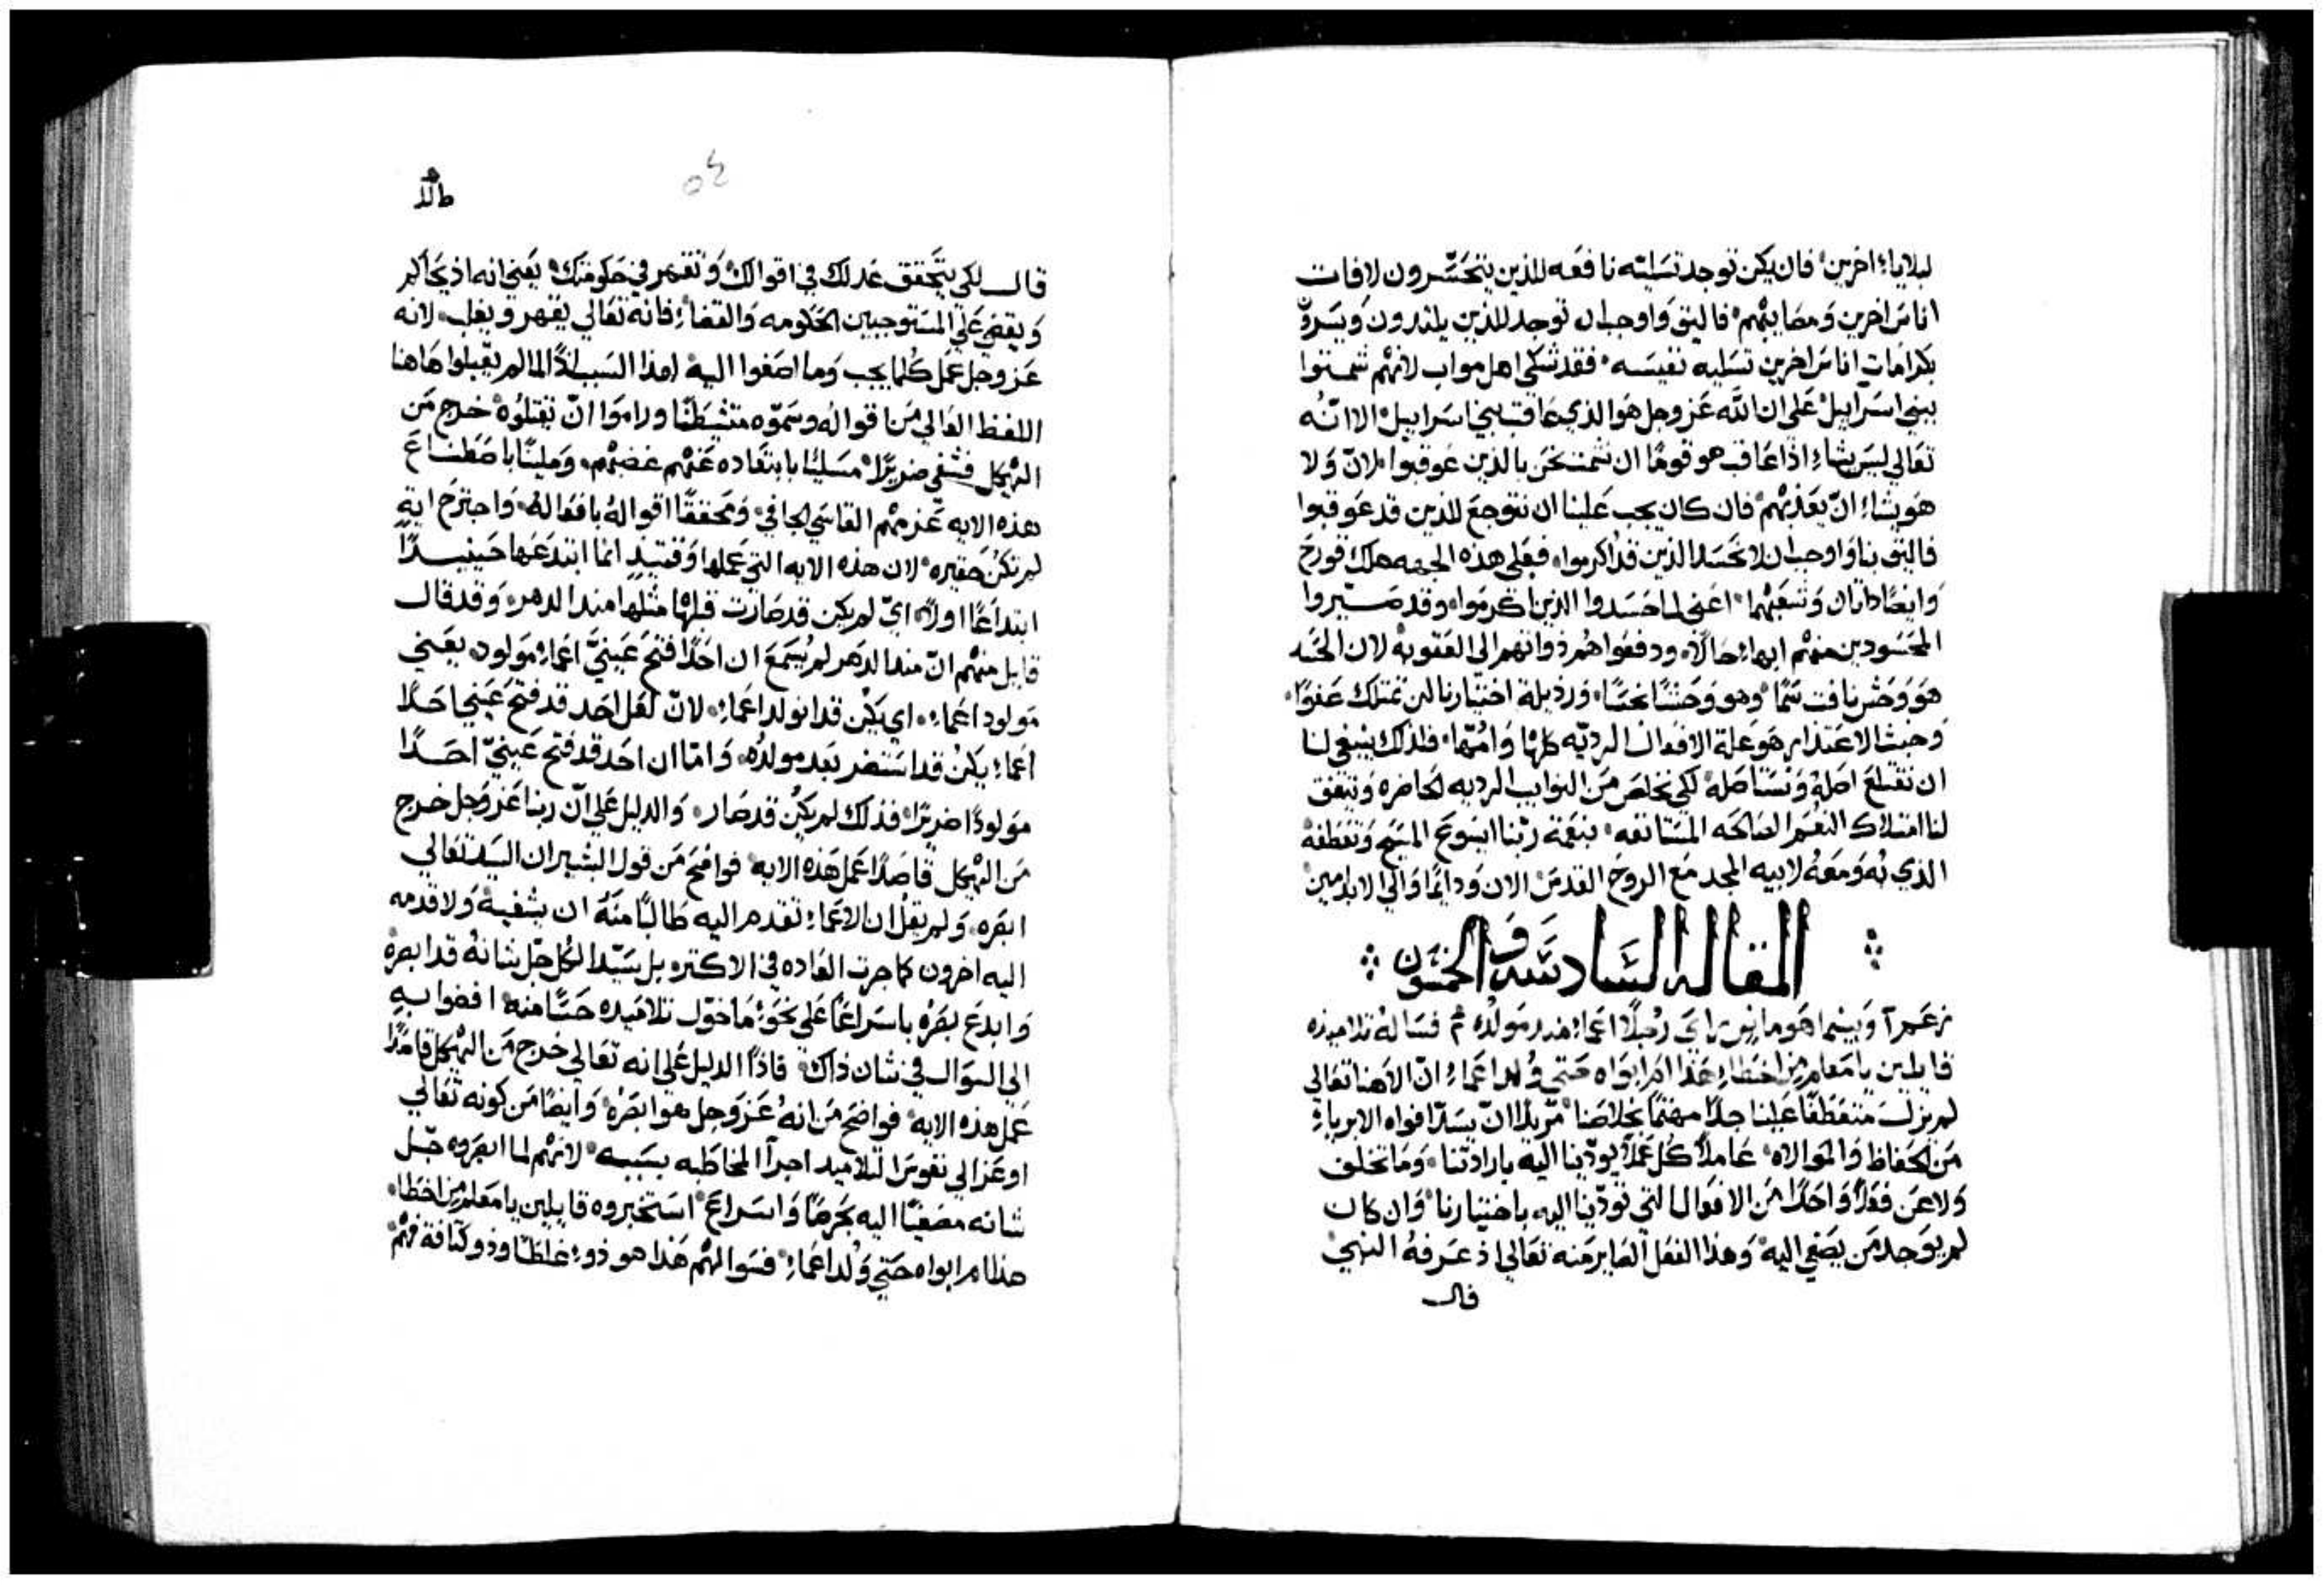 لبلاياء اخرين فان يكن توجد تسليه نافعه للذين يتحسّرون لافات
اناس اخرين ومصايبهم فاليق واوجب ان توجد للذين يلتدرون ويسرّو
بكرامات اناس اخرين تسليه نفيسه فقد شكى اهل مواب لانهم شمتوا
ببني اسراييل على ان الله عز وجل هو الذي عاقب بني اسراييل الا انّه
تعالى ليس يشاء اذا عاقب هو قومًا ان نشمت نحن بالذين عوقبوا لانّ ولا
هو يشاء ان يعذبهم فان كان يجب علينا ان نتوجع للذين قد عوقبوا
فاليق بنا واوجب ان لا نحسد الذين قد اكرموا فبعلى هذه الجهه هلك قورح
وايضًا داثان وشعبهما اعني لما حسدوا الذين اكرموا وقد صيّروا
المحسودين منهم ابهاء حالًا ودفعوا هم ذواتهم الى العقوبه لان الحسد
هو وحش نافث سمًا وهو وحشًا نجسًا ورذيلة اختيارنا لن تمتلك عفوًا
وخبث الاعتذار هو علة الافعال الرديّه كلها وامّها فلذلك ينبغي لنا
ان نقتلع اصله ونستاصله لكي نخلص من النوايب الرديه الحاضره ونتفق
لنا امتلاك النعم الصالحه المستانفه بنعمة ربّنا ايسوع المسيح وتعطفه
الذي به ومعه لابيه المجد مع الروح القدس الان ودايمًا والى الابد امين
المقالة السادسة والخمسون
زعم آ وبينما هو ماض راى رجلًا اعماء منذ مولده فساله تلاميذه
قايلين يا معلم من اخطاء هذا ام ابواه حتى وُلد اعماء انّ الاهنا تعالى
لم يزل متعطفًا علينا جدًا مهتمًا بخلاصنا مريدًا ان يسدّ افواه الابرياء
من الحفاظ والموالاه عاملًا كل عملًا يودّينا اليه بارادتنا وما تخلف
ولا عن فعلًا واحدًا من الافعال التي تودّينا اليه باختيارنا وان كان
لم يوجد من يصغي اليه وهذا الفعل الصاير منه تعالى اذ عرفه النبي
قال
قال لكي يتحقق عدلك في اقوالك وتقهر في حكومتك يعني انه اذ يحاكم
ويقضي على المستوجبين الحكومه والقضاء فانه تعالى يقهر ويغلب لانه
عز وجل عمل كلما يجب وما اصغوا اليه لهذا السبب اذًا لما لم يقبلوا هاهنا
اللفظ العالي من اقواله وسمّوه متشيطنًا وراموا انّ يقتلوه خرج من
الهيكل فشفى ضريرًا مسليًا بابتعاده عنهم غضبهم ومليّنًا باصطناع
هذه الايه عزمهم القاسي الجافي ومحققًا اقواله بافعاله واجترح ايةٍ
لم تكن حقيره لان هذه الايه التي عملها وقتيدٍ انما ابتدعها حينيدًا
ابتداعًا اولًا ايّ لم يكن قد صارت قبلها مثلها منذ الدهر وقد قال
قايل منهم انّ منذ الدهر لم يُسمع ان احدًا فتح عينيّ اعماء مولود يعني
مولود اعماء اي يكن قد انولد اعماء لانّ لعل احد قد فتح عيني احدًا
اعماء يكن قد استضر بعد مولده واما ان احد قد فتح عينيّ احدًا
مولودًا ضريرًا فذلك لم يكن قد صار والدليل على انّ ربنا عز وجل خرج
من الهيكل قاصدًا عمل هذه الايه فواضح من قول البشير ان السيد تعالى
ابصره ولم يقل ان الاعماء تقدم اليه طالبًا منه ان يشفيه ولا قدمه
اليه اخرون كما جرت العاده في الاكثر بل سيّد الكل جلّ شانه قد ابصره
وابدع بصره باسراعًا على نحوء ما خوّل تلاميذه حسًا منه افضوا به
الى السوال في شان ذاك فاذًا الدليل على انه تعالى خرج من الهيكل قاصدًا
عمل هذه الايه فواضح من انه عز وجل هو ابصره وايضًا من كونه تعالى
اوعز الى نفوس التلاميد اجرآ المخاطبه بسببه لانهم لما ابصروه جلّ
شانه مصغيًا اليه بحرصًا واسراع استخبروه قايلين يا معلم من اخطاء
هذا ام ابواه حتى وُلد اعماء فسوالهم هذا هو ذوء غلطًا وذو كثافة فهم